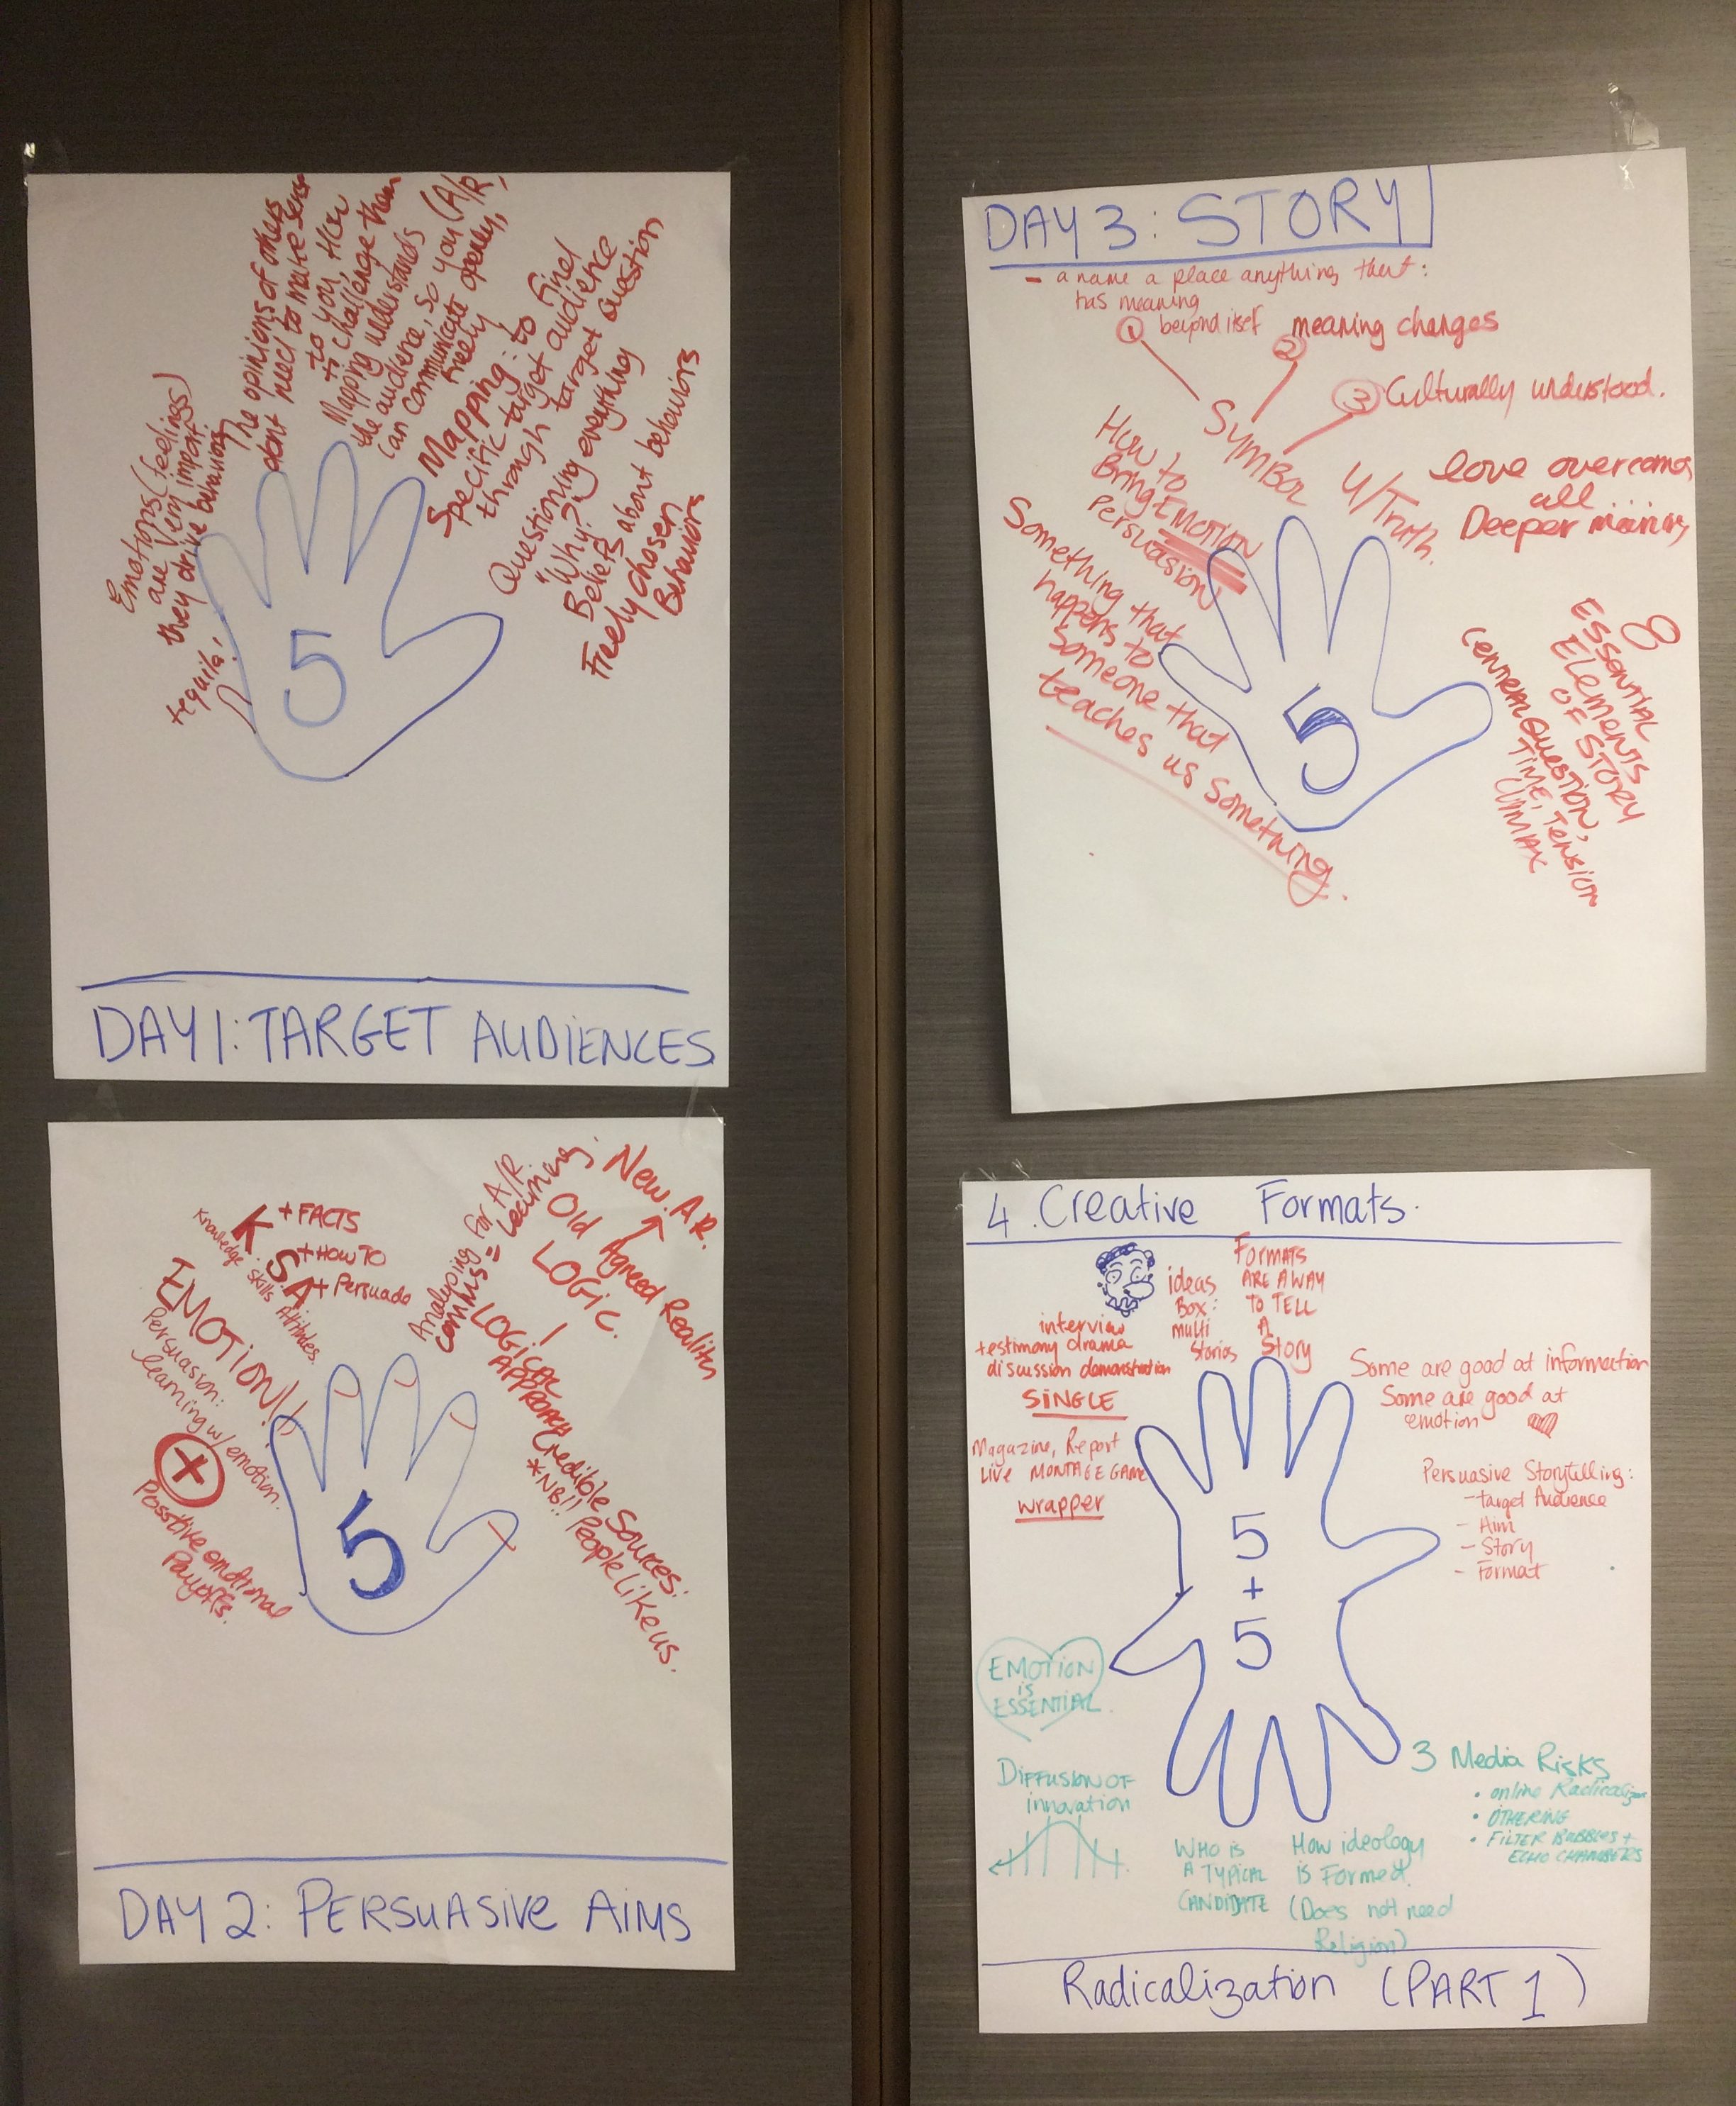 Emotions (feelings)
are very import.
they drive behaviors
tequila!
The opinions of others
dont need to make sense
to you, How
to challenge them
Mapping understands
the audience, so you (A/R,
can communicate openly,
freely
Mapping: to find
specific target audience
through target question
Questioning everything
"Why?"
Beliefs about behaviors
Freely chosen
Behaviors
5
DAY 1: TARGET AUDIENCES
K + FACTS
Knowledge
S + HOW TO
skills
A + Persuade
Attitudes.
EMOTION!!
Persuasion:
learning w/ emotion.
+
Positive emotional
Payoffs.
Analyping for A/R
comms = Learning.
New A.R.
Old Agreed Reality
LOGIC.
!
LOGICAL
APPROACH
Credible Sources:
*NB!! People like us.
5
DAY 2: PERSUASIVE AIMS
DAY 3: STORY
- a name a place anything that:
has meaning
1 beyond itself
2 meaning changes
3 Culturally understood.
SYMBOL
How to
Bring EMOTION
Persuasion
Something that
happens to
someone that
teaches us something.
U/Truth.
love overcomes
all
Deeper meaning
8
ESSENTIAL
Elements
OF STORY
CENTRAL QUESTION,
TIME, TENSION
CLIMAX
5
4. Creative Formats.
ideas
Box:
multi
Stories
FORMATS
ARE A WAY
TO TELL
A
Story
interview
testimony drama
discussion demonstration
SINGLE
Magazine, Report
Live MONTAGE GAME
wrapper
Some are good at information
Some are good at
emotion
Persuasive Storytelling:
- target Audience
- Aim
- Story
- Format
5
+
5
EMOTION
is
ESSENTIAL.
DIFFUSION OF
innovation
WHO IS
A TYPICAL
CANDIDATE
How ideology
is Formed.
(Does not need
Religion)
3 Media RISKS
• online Radicaliz
• OTHERING
• FILTER BUBBLES +
ECHO CHAMBERS
Radicalization (PART 1)